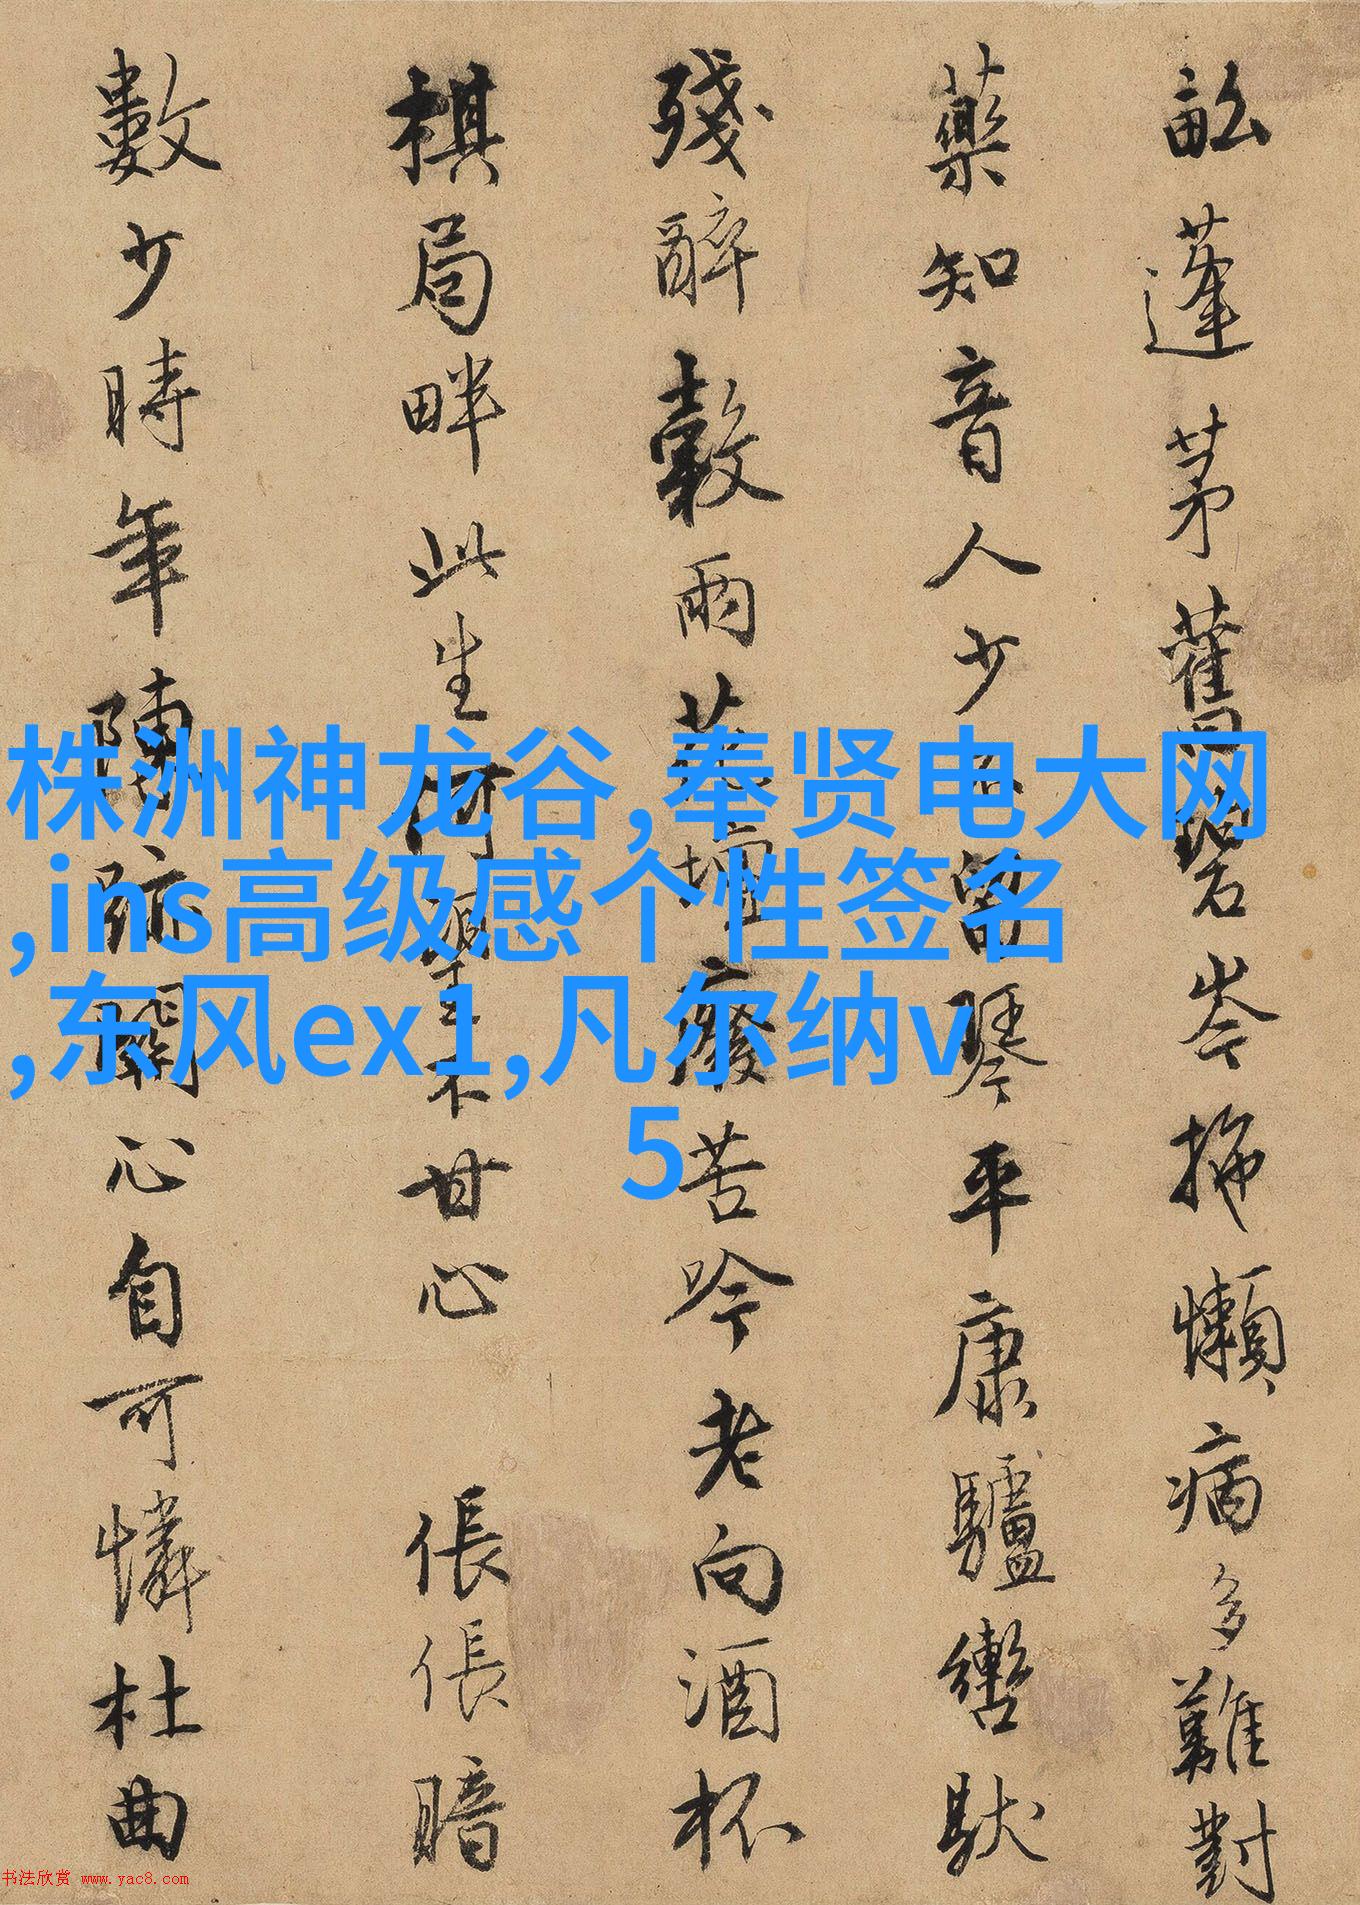 畝蓬茅舊碧岑拖懶病多難對
藥知音人少
琴平康驢轡馱
殘醉
雨
廢苦吟老向酒杯
棋局畔此生
不甘心 倀倀暗
數少時年
心自可憐杜曲
株洲神龙谷,奉贤电大网
,ins高级感个性签名
,东风ex1,凡尔纳v
5
书法欣赏 www.yac8.com